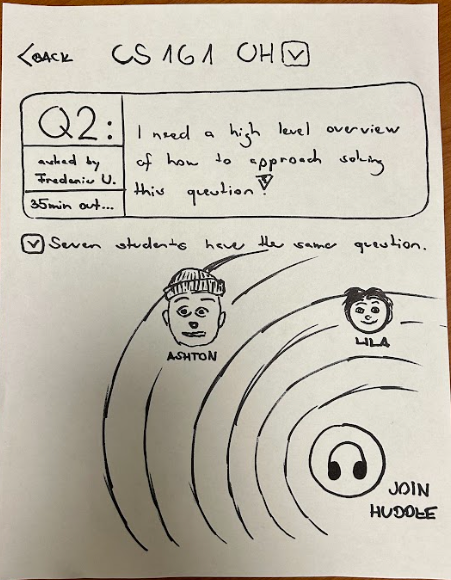 <BACK CS 161 OH
Q2:
asked by
Frederic U.
35min out...
I need a high level overview
of how to approach solving
this question
Seven students have the same question.
ASHTON
LILA
JOIN
HUDDLE